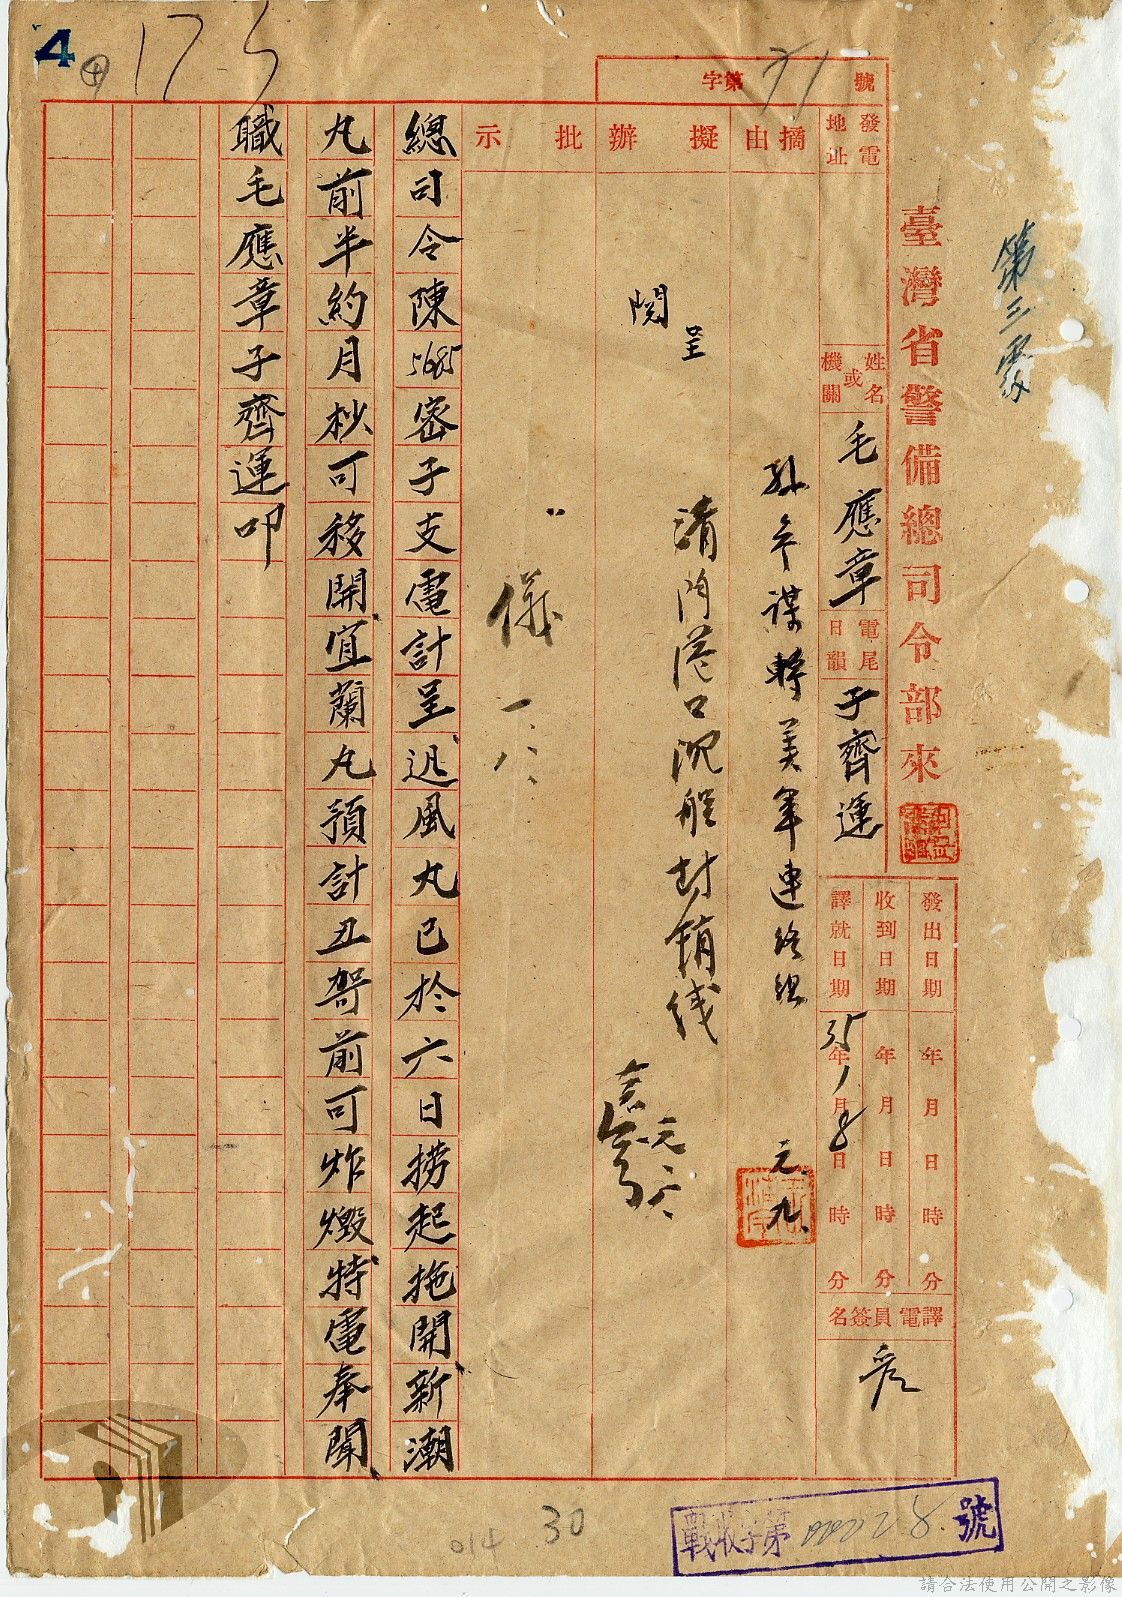 4
17-5
第三處
臺灣省警備總司令部來
字第 31 號
發電地址
姓名或機關
毛應章
電尾日韻
子齊運
發出日期 年 月 日 時 分
收到日期 年 月 日 時 分
譯就日期 35年1月8日 時 分
譯電員簽名
摘由
孫參謀轉美軍連絡組
元、九、
擬辦
清除港口沉船封銷线
呈
閱
元、八、
批示
儀 一、八、
總司令陳5685密子支電計呈迅風丸已於六日撈起拖開新潮
丸前半約月杪可移開宜蘭丸預計丑哿前可炸燬特電奉聞
職毛應章子齊運叩
戰收字第 號
014
30
請合法使用公開之影像